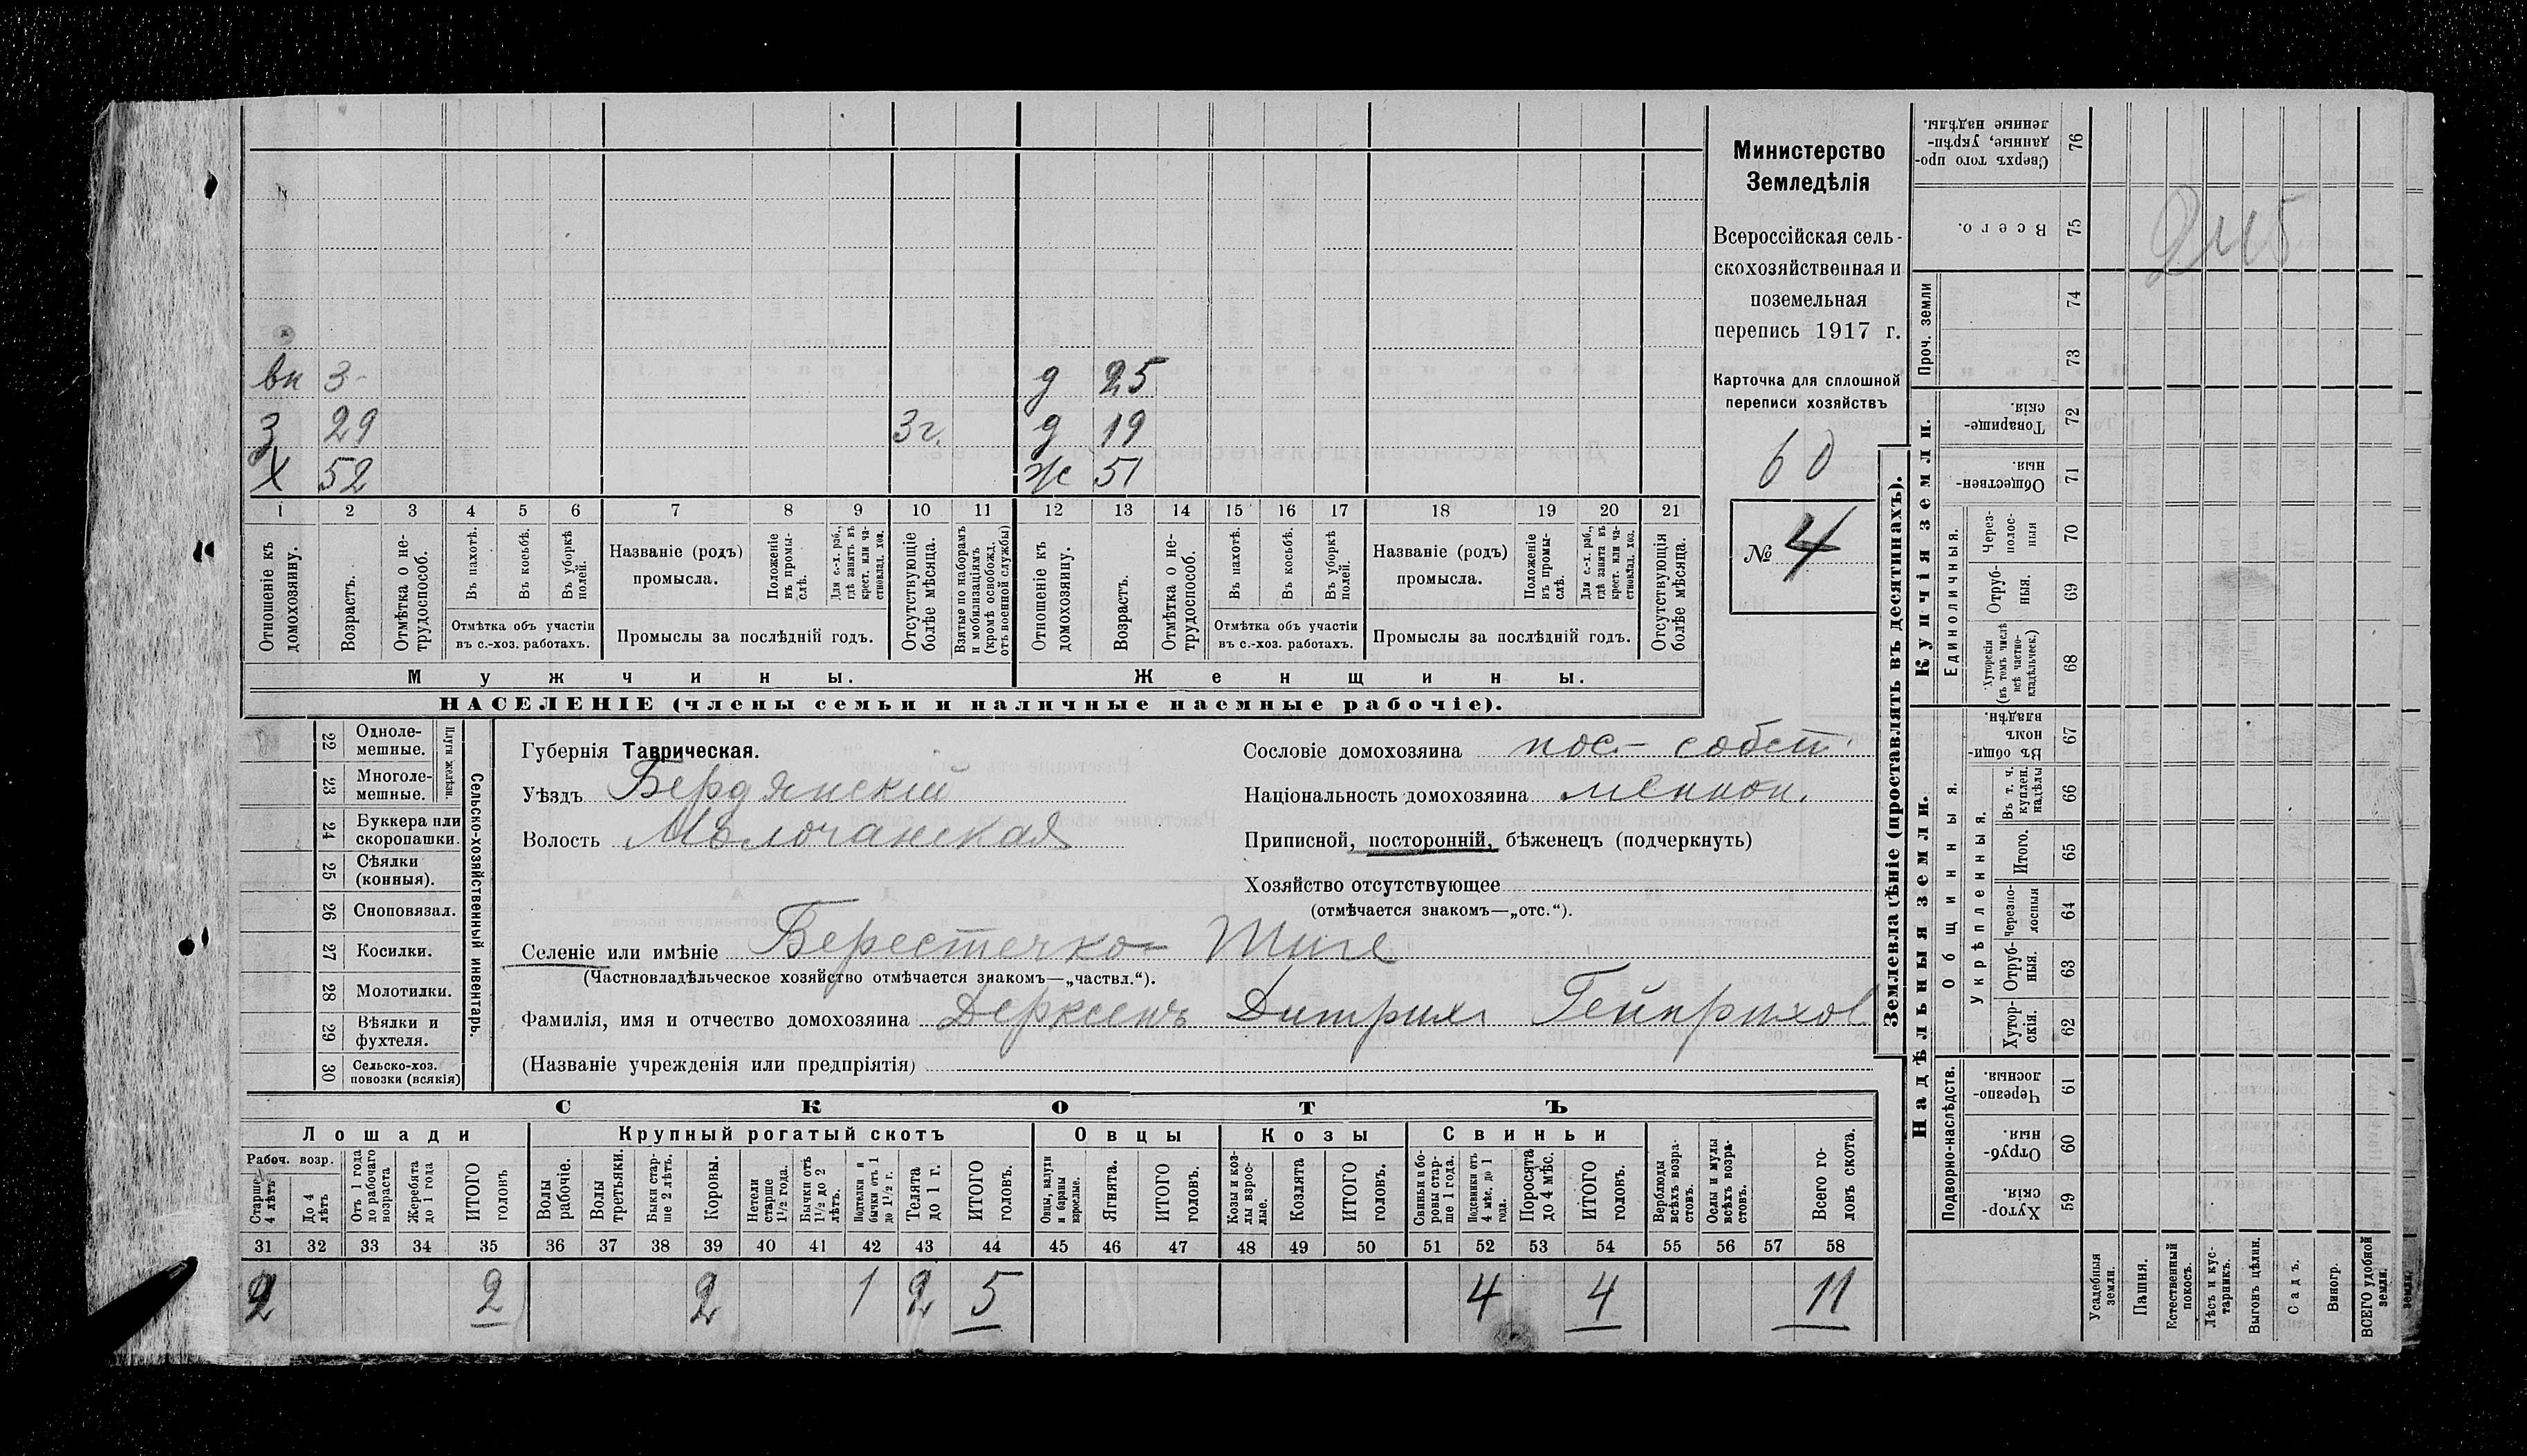 вн 3- д 25
З 29 3г. д 19
Х 52 ж 51
1 2 3 4 5 6 7 8 9 10 11 12 13 14 15 16 17 18 19 20 21
Отношеніе къ домохозяину.
Возрастъ.
Отмѣтка о не-трудоспособ.
Въ пахотѣ.
Въ косьбѣ.
Въ уборкѣ полей.
Отмѣтка объ участіи
въ с.-хоз. работахъ.
Названіе (родъ)
промысла.
Положеніе въ промы-слѣ.
Для с.-х. раб., гдѣ занятъ въ крест. или ча-стновлад. хоз.
Промыслы за послѣдній годъ.
Отсутствующіе болѣе мѣсяца.
Взятые по наборамъ и мобилизаціямъ (кромѣ освобожд. отъ военной службы)
Отношеніе къ домохозяину.
Возрастъ.
Отмѣтка о не-трудоспособ.
Въ пахотѣ.
Въ косьбѣ.
Въ уборкѣ полей.
Отмѣтка объ участіи
въ с.-хоз. работахъ.
Названіе (родъ)
промысла.
Положеніе въ промы-слѣ.
Для с.-х. раб., гдѣ занята въ крест. или ча-стновлад. хоз.
Промыслы за послѣдній годъ.
Отсутствующія болѣе мѣсяца.
Мужчины. Женщины.
НАСЕЛЕНІЕ (члены семьи и наличные наемные рабочіе).
Министерство
Земледѣлія
Всероссійская сель-
скохозяйственная и
поземельная
перепись 1917 г.
Карточка для сплошной
переписи хозяйствъ
60
№ 4
22 Одноле-мешные.
23 Многоле-мешные.
Плуги желѣзн.
24 Буккера или скоропашки.
25 Сѣялки (конныя).
26 Сноповязал.
27 Косилки.
28 Молотилки.
29 Вѣялки и фухтеля.
30 Сельско-хоз. повозки (всякія)
Сельско-хозяйственный инвентарь.
Губернія Таврическая.
Уѣздъ Бердянскій
Волость Молочанская
Сословіе домохозяина пос- собст.
Національность домохозяина меннон.
Приписной, посторонній, бѣженецъ (подчеркнуть)
Хозяйство отсутствующее
(отмѣчается знакомъ—„отс.“).
Селеніе или имѣніе Берестечко- Тиге
(Частновладѣльческое хозяйство отмѣчается знакомъ—„частвл.“).
Фамилія, имя и отчество домохозяина Дерксенъ Дитрихъ Гейнрихов
(Названіе учрежденія или предпріятія)
СКОТЪ
Лошади Крупный рогатый скотъ Овцы Козы Свиньи
Рабоч. возр.
Старше 4 лѣтъ
До 4 лѣтъ
Отъ 1 года до рабочаго возраста
Жеребята до 1 года
ИТОГО головъ
Волы рабочіе.
Волы третьяки.
Быки стар-ше 2 лѣтъ.
Коровы.
Нетели старше 1½ года.
Бычки отъ 1½ до 2 лѣтъ.
Подтелки и бычки отъ 1 до 1½ г.
Телята до 1 г.
ИТОГО головъ.
Овцы, валухи и бараны взрослые.
Ягнята.
ИТОГО головъ.
Козы и коз-лы взрос-лые.
Козлята
ИТОГО головъ.
Свиньи и бо-ровы стар-ше 1 года.
Подсвинки отъ 4 мѣс. до 1 года.
Поросята до 4 мѣс.
ИТОГО головъ.
Верблюды всѣхъ возра-стовъ.
Ослы и мулы всѣхъ возра-стовъ.
Всего го-ловъ скота.
31 32 33 34 35 36 37 38 39 40 41 42 43 44 45 46 47 48 49 50 51 52 53 54 55 56 57 58
2 2 2 1 2 5 4 4 11
Землевладѣніе (проставлять въ десятинахъ).
Купчія земли.
Надѣльныя земли.
Сверхъ того про-данные, укрѣп-ленные надѣлы. 76
Всего. 75
Проч. земли 74 73
Товарище-скія. 72
Обществен-ныя. 71
Единоличныя.
Через-полос-ныя 70
Отруб-ныя. 69
Хуторскія (въ томъ числѣ всѣ частно-владѣльческ.) 68
Общинныя.
Въ общи-номъ владѣн. 67
Укрѣпленныя.
Въ т. ч. куплен. надѣлы 66
Итого. 65
Черезпо-лосныя 64
Отруб-ныя. 63
Хутор-скія. 62
Подворно-наслѣдств.
Черезпо-лосныя. 61
Отруб-ныя. 60
Хутор-скія. 59
Усадебныя земли.
Пашня.
Естественный покосъ.
Лѣсъ и кус-тарникъ.
Выгонъ цѣлин.
Садъ.
Виногр.
ВСЕГО удобной земли.